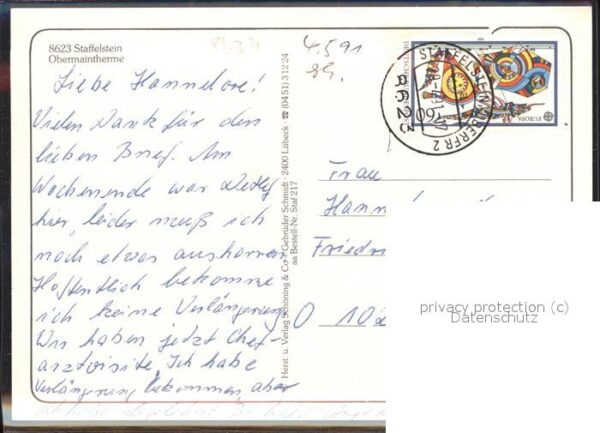 8623 Staffelstein
Obermaintherme
8623
4.5.91
Liebe Hannelore!
Vielen Dank für den
lieben Brief. Am
Wochenende war Detlef
hier, leider muß ich
noch etwas ausharren
Hoffentlich bekomme
ich keine Verlängerung
Wir haben jetzt Chef-
arztvisite, Ich habe
Verlängerung bekommen, aber
Herst. u. Verlag Schöning & Co + Gebrüder Schmidt · 2400 Lübeck · ☎ (04 51) 3 12 24
aa Bestell-Nr. Staf 217
STAFFELSTEIN, OBERFR 2
8623
60
EUROPA
Frau
Hann
Friedr
O 102
privacy protection (c)
Datenschutz